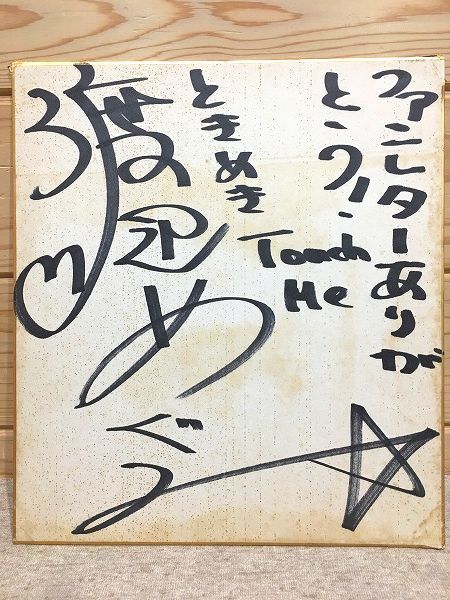 ファンレターありが
とうー
ときめき
Touch
Me
渡辺めぐみ